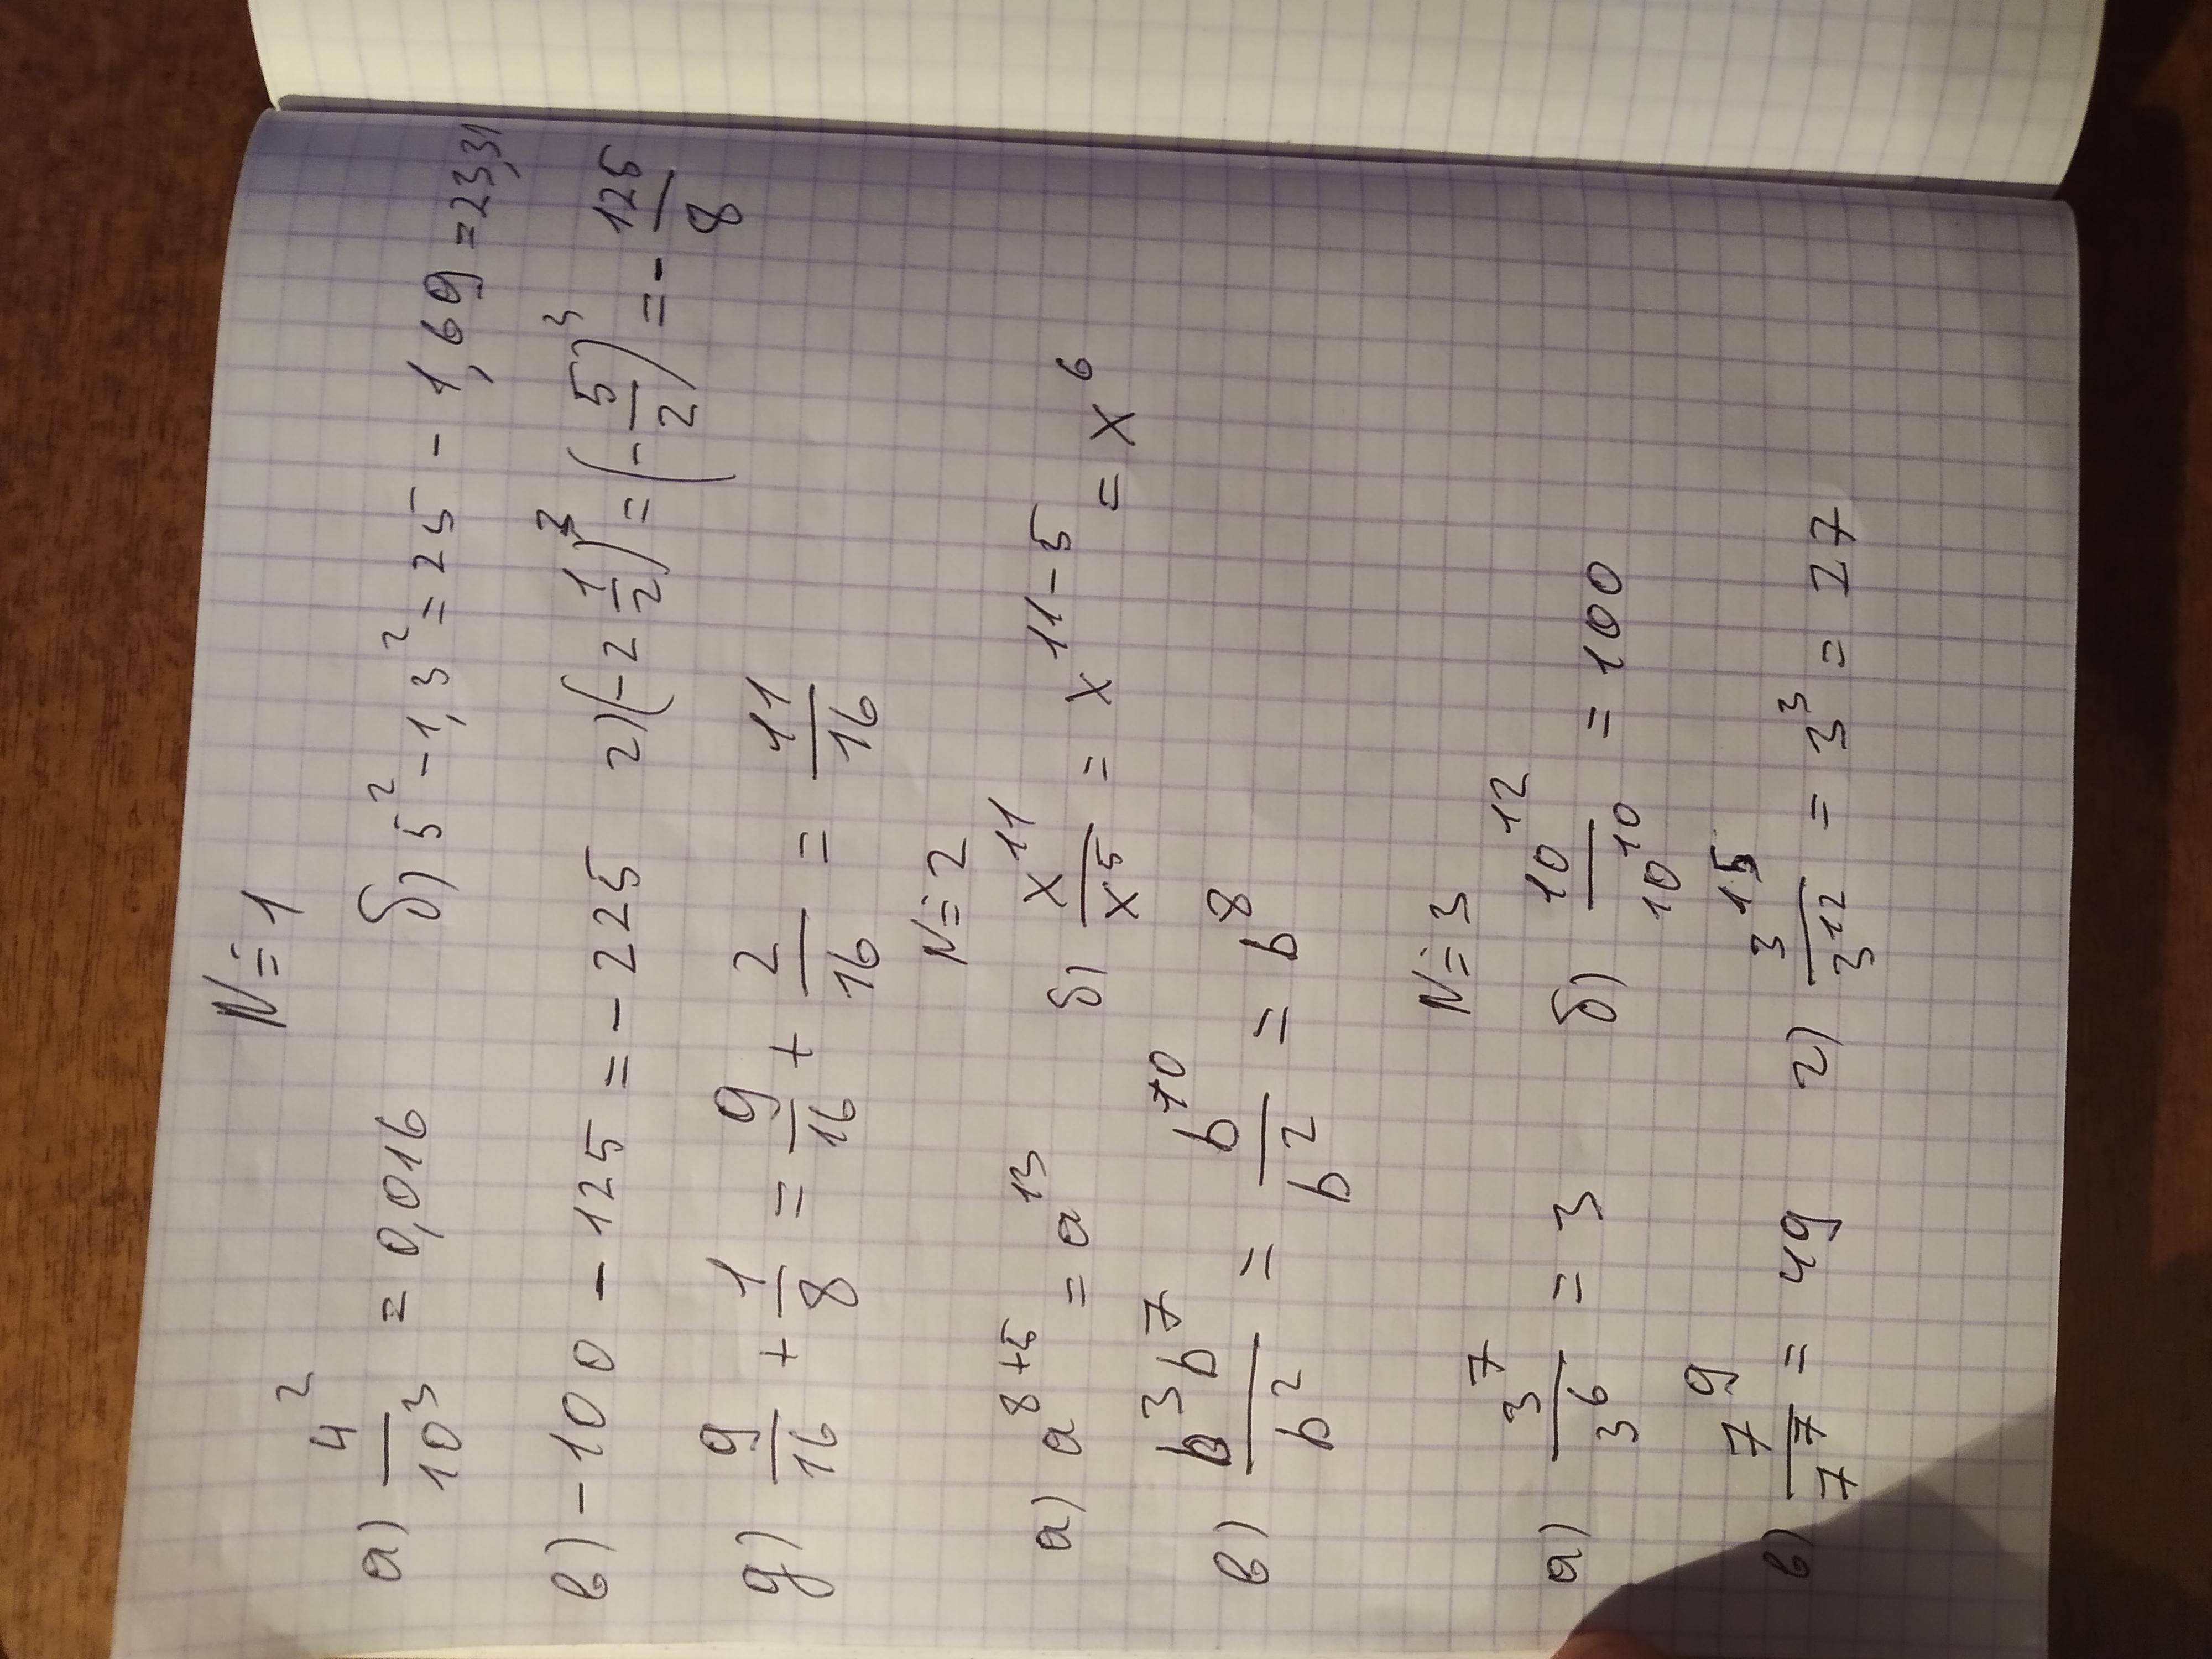 №1
а) 4²/10³ = 0,016 б) 5² - 1,3² = 25 - 1,69 = 23,31
в) -100 - 125 = -225 г) (-2 1/2)³ = (-5/2)³ = -125/8
д) 9/16 + 1/8 = 9/16 + 2/16 = 11/16
№2
а) a⁸⁺⁵ = a¹³ б) x¹¹/x⁵ = x¹¹⁻⁵ = x⁶
в) b³b⁷/b² = b¹⁰/b² = b⁸
№3
а) 3⁷/3⁶ = 3 б) 10¹²/10¹⁰ = 100
в) 7⁹/7⁷ = 49 г) 3¹⁵/3¹² = 3³ = 27